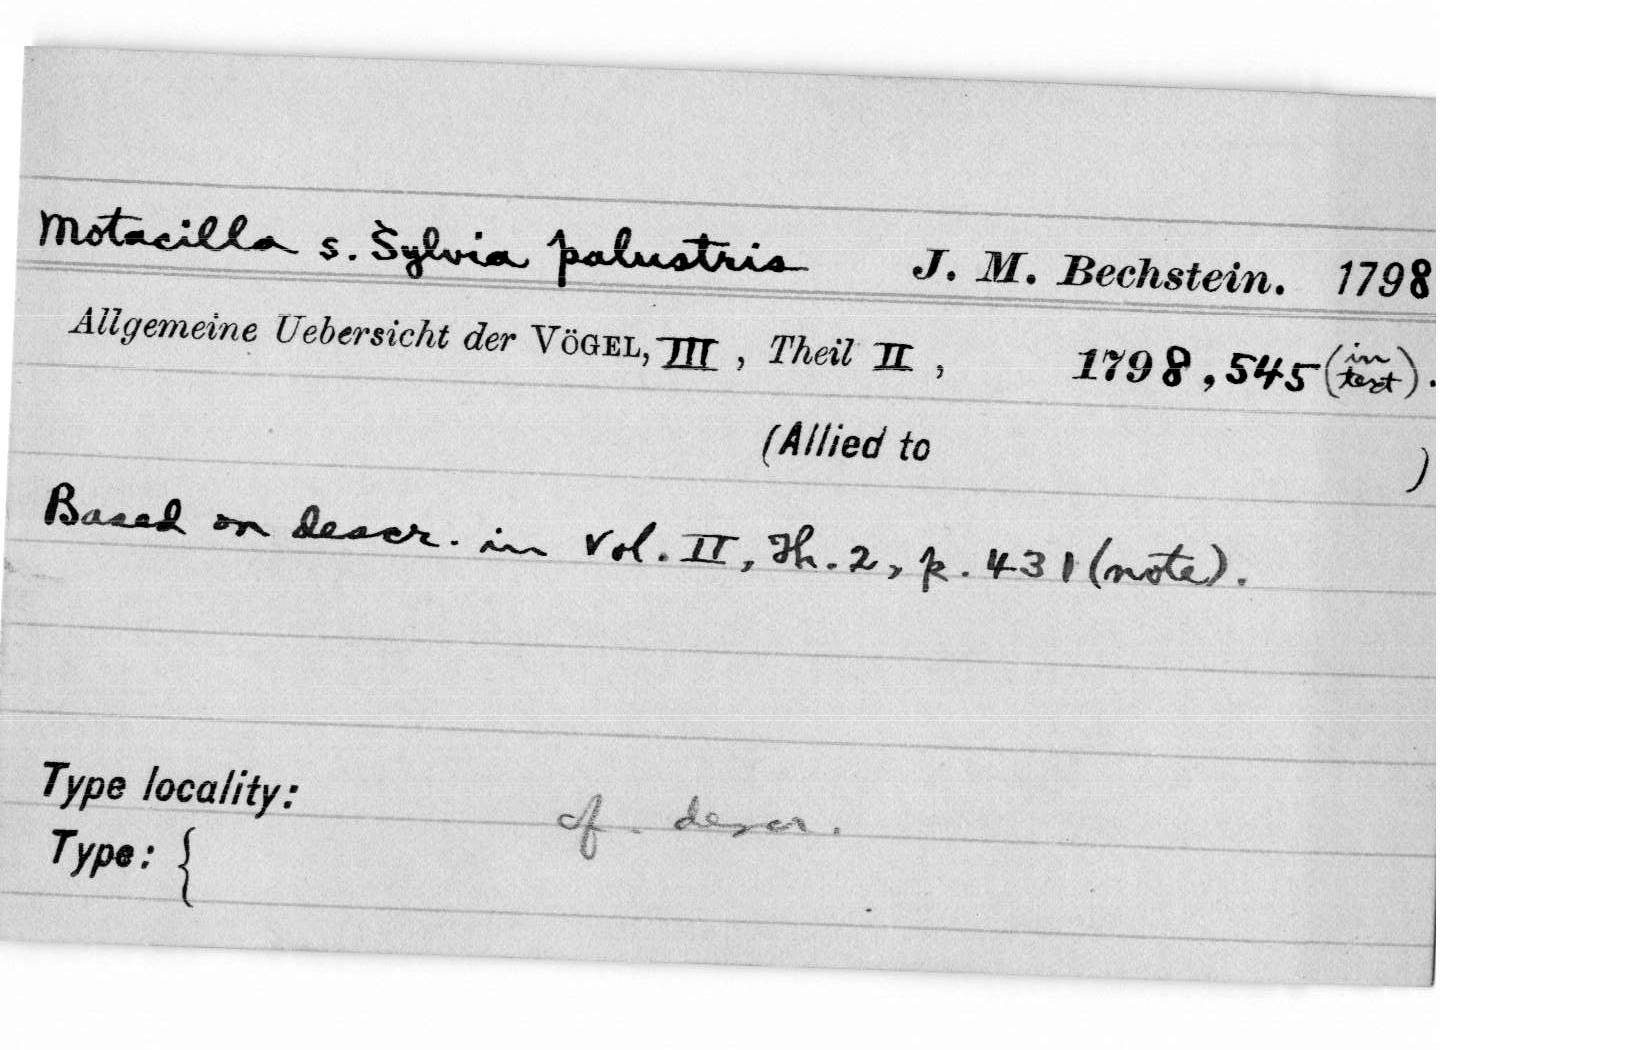 Motacilla s. Sylvia palustris J. M. Bechstein. 1798
Allgemeine Uebersicht der VÖGEL, III, Theil II, 1798, 545 (in text).
(Allied to )
Based on descr. in Vol. II, Th. 2, p. 431 (note).
Type locality: cf. descr.
Type: {